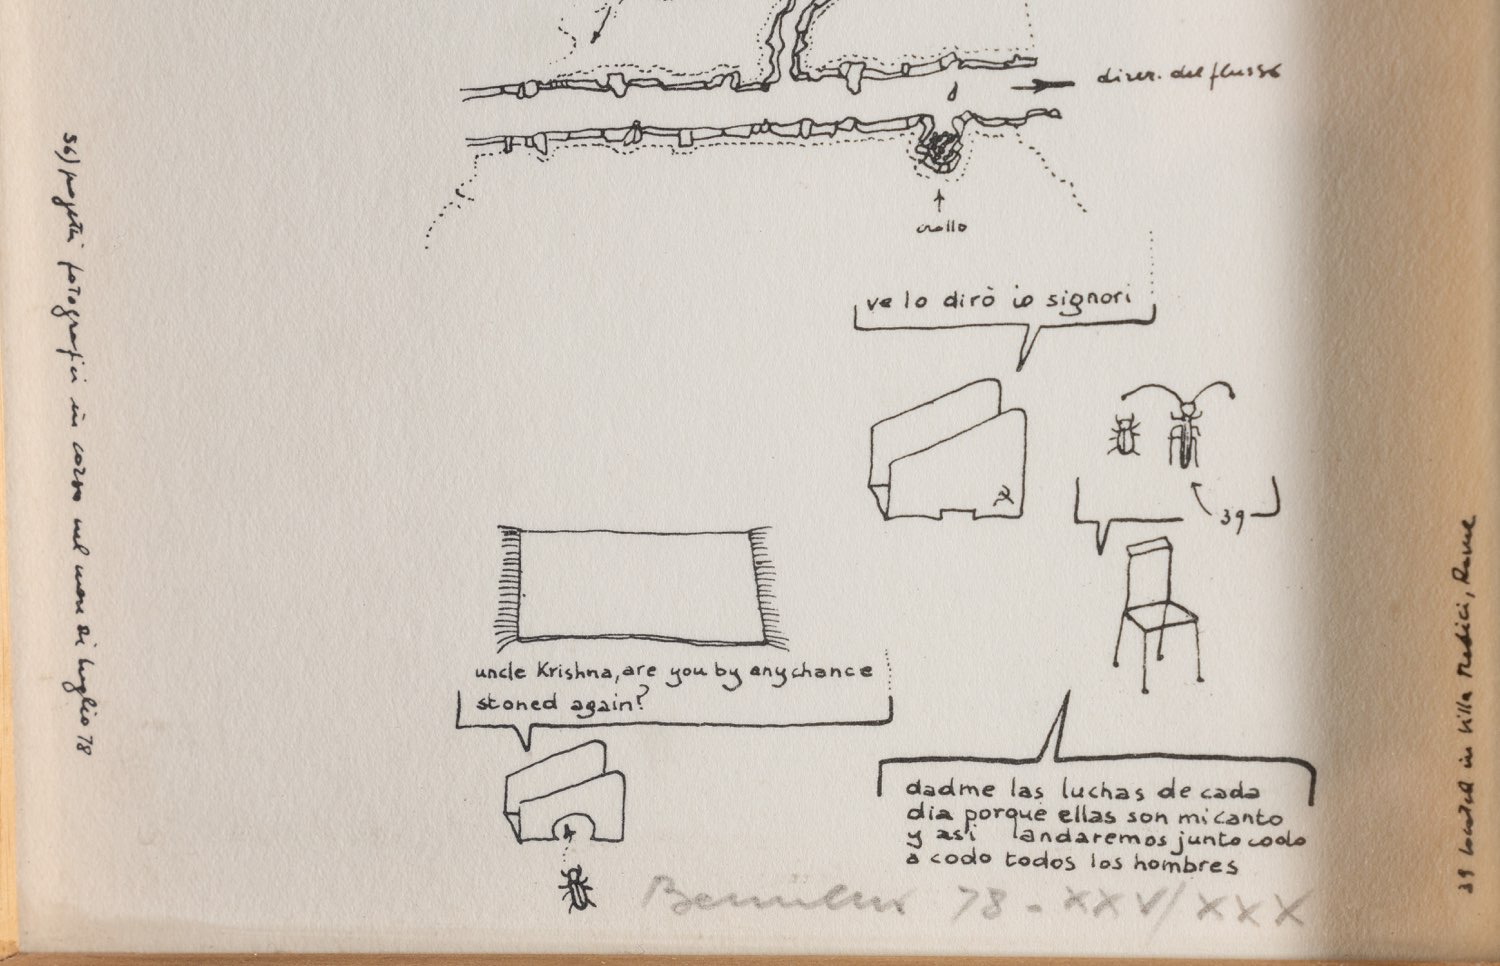 direz. del flusso
crollo
ve lo dirò io signori
39
uncle Krishna, are you by any chance
stoned again?
dadme las luchas de cada
dia porque ellas son mi canto
y asi andaremos junto codo
a codo todos los hombres
78 - XXV/XXX
56) progetti fotografici in corso nel mese di luglio 78
39 located in Villa Medici, Rome